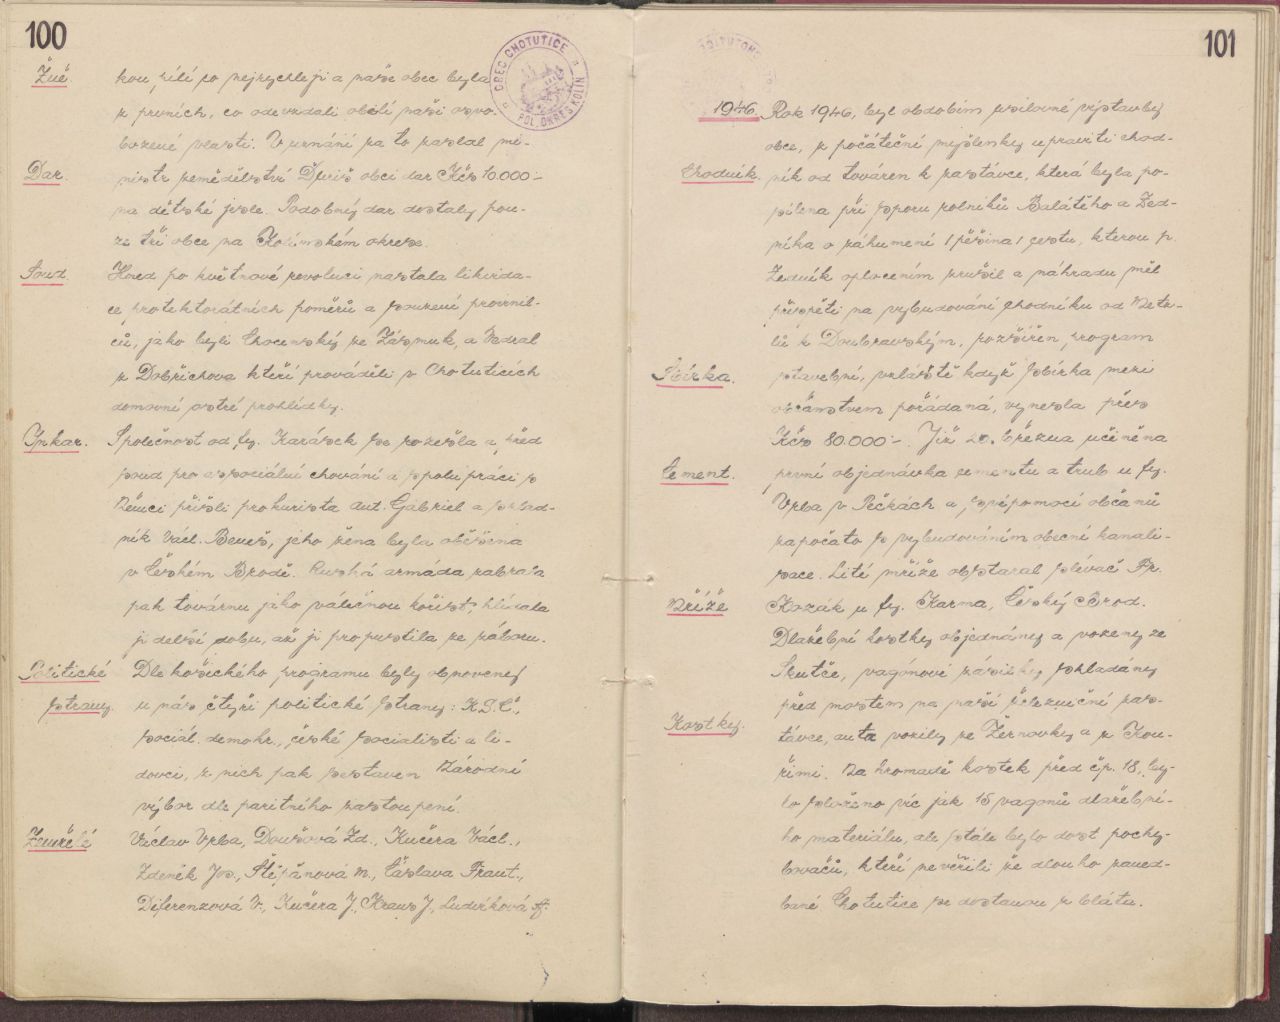 100
Žně. kou, sílí co nejrychleji a naše obec byla
z prvních, co odevzdali obilí naší osvo-
bozené vlasti. V uznání za to zaslal mi-
Dar. nistr zemědělství Ďuriš obci dar Kčs 10.000·-
na dětské jesle. Podobný dar dostaly pou-
ze tři obce na Kolínském okrese.
Soud Hned po květnové revoluci nastala likvida-
ce protektorátních poměrů a souzení provinil-
ců, jako byli Chocenský ze Zásmuk, a Vedral
z Dobřichova kteří prováděli v Chotuticích
domovní ostré prohlídky.
Inkar. Společnost od fy. Karásek se rozešla a před
soud pro asociální chování a spolupráci s
Němci přišli prokurista Ant. Gabriel a sklad-
ník Václ. Beneš, jeho žena byla oběšena
v Českém Brodě. Ruská armáda zabrala
pak továrnu jako válečnou kořist, hlídala
ji delší dobu, až ji propustila ze záboru.
Politické Dle košického programu byly obnoveny
strany. u nás čtyři politické strany: K.S.Č.,
sociál. demokr., čeští socialisti a li-
dovci, z nich pak sestaven Národní
výbor dle paritního zastoupení.
Zemřelé Václav Vrba, Doušová Zd., Kučera Václ.,
Zdeněk Jos., Štěpánová M., Čáslava Frant.,
Diferenzová V., Kučera J., Kraus J., Ludvíková A.
OBEC CHOTUTICE
POL. OKRES KOLÍN
101
1946. Rok 1946, byl obdobím usilovné výstavby
obce, z počáteční myšlenky upraviti chod-
Chodník. ník od továren k zastávce, která byla po-
sílena při sporu rolníků Balátého a Zed-
níka o záhumení (pěšina) cestu, kterou p.
Zedník oplocením zrušil a náhradu měl
přispěti na vybudování chodníku od Netr-
lů k Doubravským, rozšířen program
Sbírka. stavební, zvláště když sbírka mezi
občanstvem pořádaná, vynesla přes
Kčs 80.000·-. Již 20. března učiněna
Cement. první objednávka cementu a trub u fy.
Vrba v Pečkách a svépomocí občanů
započato s vybudováním obecní kanali-
sace. Lité mříže obstaral slévač Fr.
Mříže Kozák u fy. Karma, Český Brod.
Dlažební kostky objednány a vozeny ze
Skutče, vagónové zásilky skládány
před mostem na naší železniční zas-
Kostky. távce, auta vozily ze Žernovky a z Kou-
řimi. Na hromadě kostek před čp. 18, by-
lo složeno víc jak 15 vagonů dlažební-
ho materiálu, ale stále bylo dost pochy-
bovačů, kteří nevěřili že dlouho zaned-
bané Chotutice se dostanou z bláta.